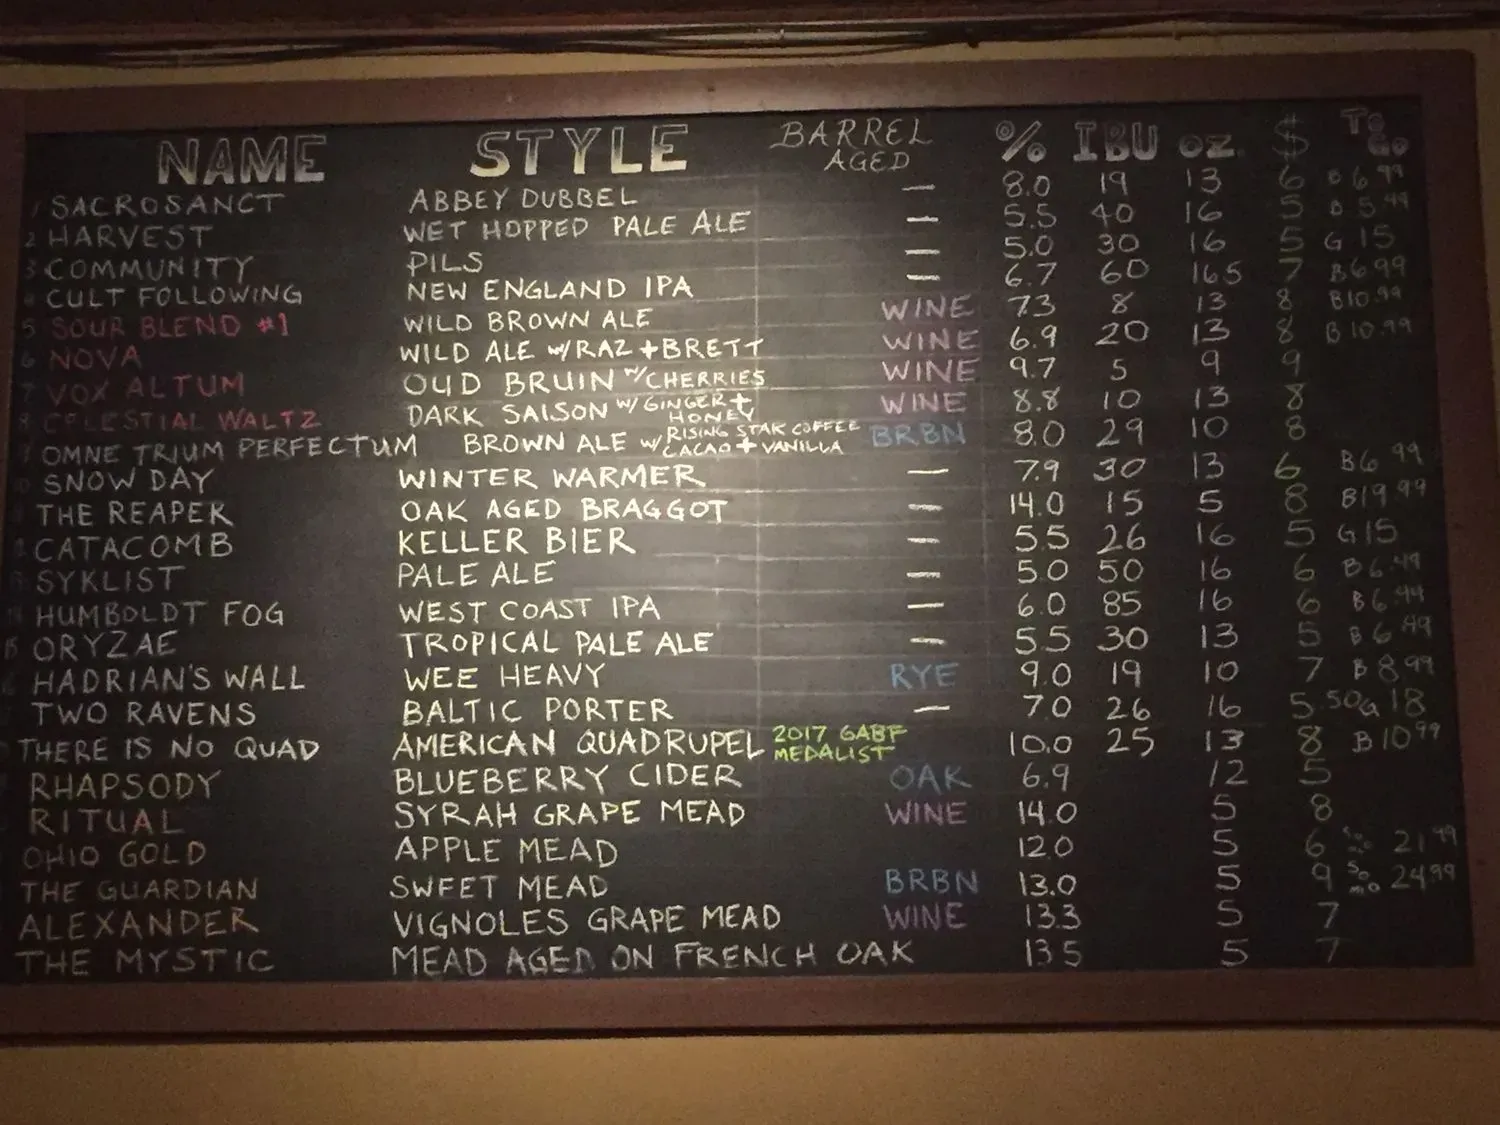 NAME STYLE BARREL AGED % IBU OZ. $ TO GO
1 SACROSANCT ABBEY DUBBEL — 8.0 19 13 6 B 6.99
2 HARVEST WET HOPPED PALE ALE — 5.5 40 16 5 B 5.99
3 COMMUNITY PILS — 5.0 30 16 5 G 15
4 CULT FOLLOWING NEW ENGLAND IPA — 6.7 60 16.5 7 B 6.99
5 SOUR BLEND #1 WILD BROWN ALE WINE 7.3 8 13 8 B 10.99
6 NOVA WILD ALE W/RAZ + BRETT WINE 6.9 20 13 8 B 10.99
7 VOX ALTUM OUD BRUIN W/CHERRIES WINE 9.7 5 9 9
8 CELESTIAL WALTZ DARK SAISON W/ GINGER + HONEY WINE 8.8 10 13 8
9 OMNE TRIUM PERFECTUM BROWN ALE W/ RISING STAR COFFEE CACAO + VANILLA BRBN 8.0 29 10 8
10 SNOW DAY WINTER WARMER — 7.9 30 13 6 B 6.99
THE REAPER OAK AGED BRAGGOT — 14.0 15 5 8 B 19.99
CATACOMB KELLER BIER — 5.5 26 16 5 G 15
SYKLIST PALE ALE — 5.0 50 16 6 B 6.49
14 HUMBOLDT FOG WEST COAST IPA — 6.0 85 16 6 B 6.99
15 ORYZAE TROPICAL PALE ALE — 5.5 30 13 5 B 6.49
HADRIAN'S WALL WEE HEAVY RYE 9.0 19 10 7 B 8.99
TWO RAVENS BALTIC PORTER — 7.0 26 16 5.50 G 18
THERE IS NO QUAD AMERICAN QUADRUPEL 2017 GABF MEDALIST 10.0 25 13 8 B 10.99
RHAPSODY BLUEBERRY CIDER OAK 6.9 12 5
RITUAL SYRAH GRAPE MEAD WINE 14.0 5 8
OHIO GOLD APPLE MEAD 12.0 5 6 21.99
THE GUARDIAN SWEET MEAD BRBN 13.0 5 9 24.99
ALEXANDER VIGNOLES GRAPE MEAD WINE 13.3 5 7
THE MYSTIC MEAD AGED ON FRENCH OAK 13.5 5 7